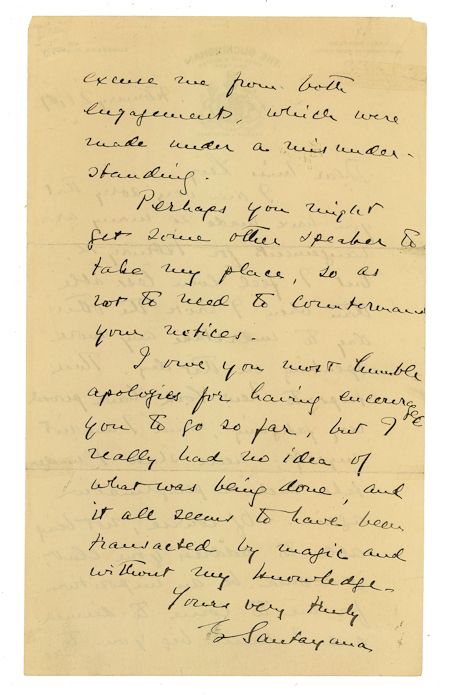 excuse me from both
engagements, which were
made under a misunder-
standing.
Perhaps you might
get some other speaker to
take my place, so as
not to need to countermand
your notices.
I owe you most humble
apologies for having encouraged
you to go so far, but I
really had no idea of
what was being done, and
it all seems to have been
transacted by magic and
without my knowledge.
Yours very truly
G Santayana